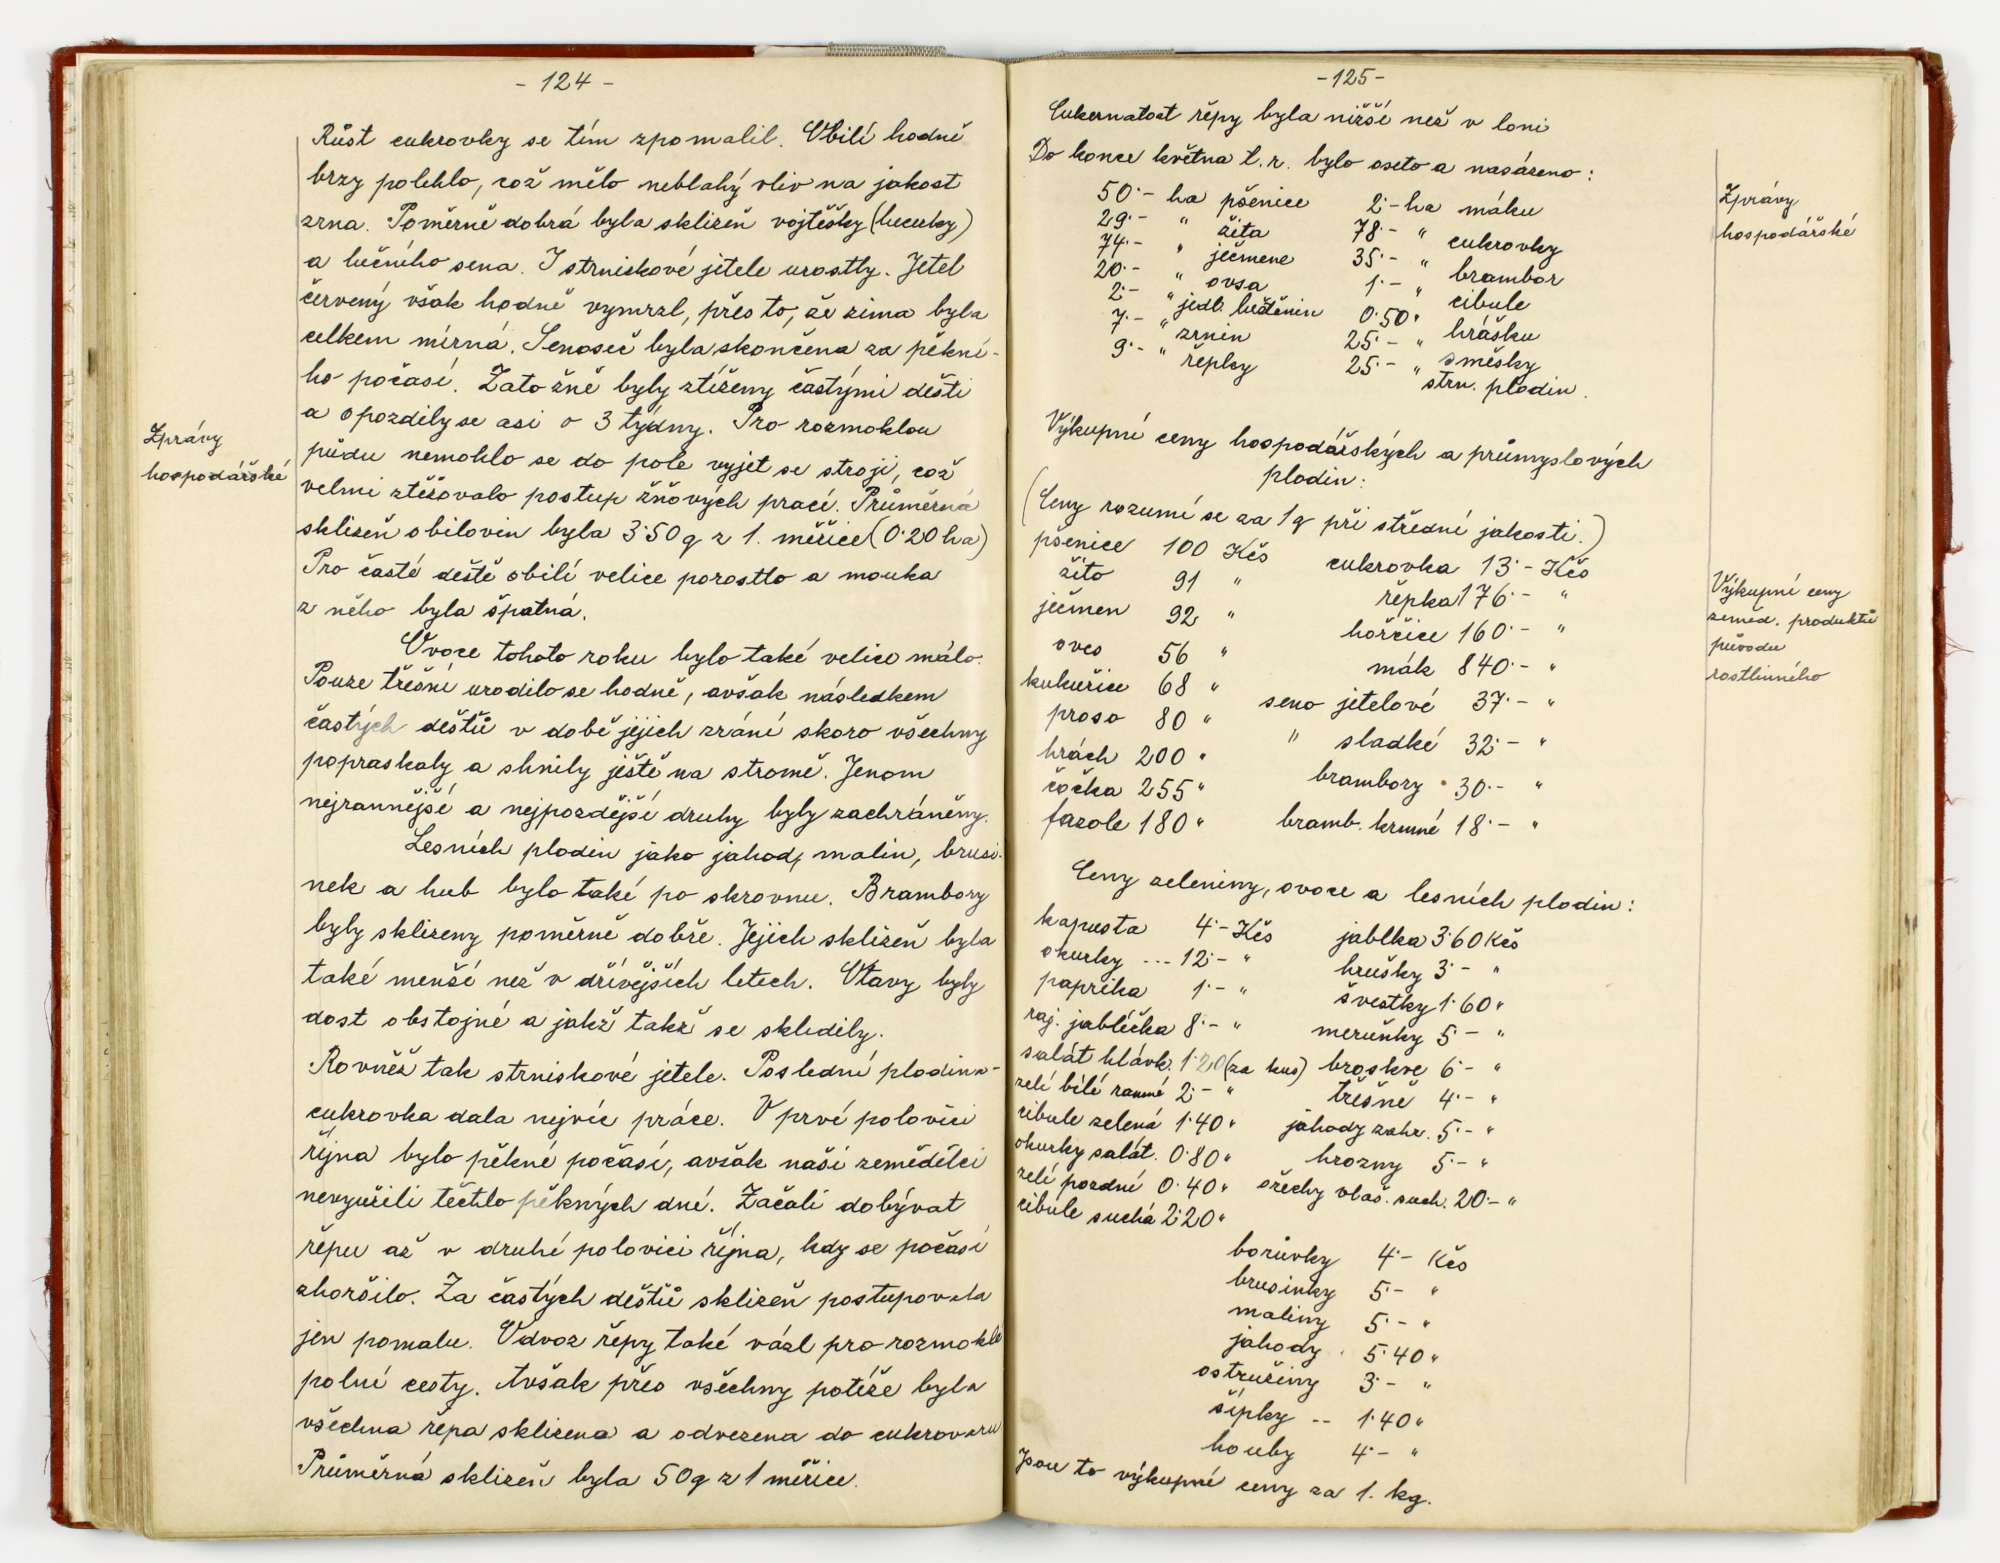 - 124 -
Růst cukrovky se tím zpomalil. Obilí hodně
brzy polehlo, což mělo neblahý vliv na jakost
zrna. Poměrně dobrá byla sklizeň vojtěšky (lucerky)
a lučního sena. I strniskové jetele urostly. Jetel
červený však hodně vymrzl, přes to, že zima byla
celkem mírná. Senoseč byla skončena za pěkné-
ho počasí. Zato žně byly ztíženy častými dešti
a opozdily se asi o 3 týdny. Pro rozmoklou
půdu nemohlo se do pole vyjet se stroji, což
velmi ztěžovalo postup žňových prací. Průměrná
sklizeň obilovin byla 3·50 q z 1. měřice (0·20 ha)
Pro časté deště obilí velice porostlo a mouka
z něho byla špatná.
Ovoce tohoto roku bylo také velice málo.
Pouze třešní urodilo se hodně, avšak následkem
častých dešťů v době jejich zrání skoro všechny
popraskaly a shnily ještě na stromě. Jenom
nejrannější a nejpozdější druhy byly zachráněny.
Lesních plodin jako jahod, malin, brusi-
nek a hub bylo také po skrovnu. Brambory
byly sklizeny poměrně dobře. Jejich sklizeň byla
také menší než v dřívějších letech. Otavy byly
dost obstojné a jakž takž se sklidily.
Rovněž tak strniskové jetele. Poslední plodina-
cukrovka dala nejvíc práce. V prvé polovici
října bylo pěkné počasí, avšak naši zemědělci
nevyužili těchto pěkných dní. Začali dobývat
řepu až v druhé polovici října, kdy se počasí
zhoršilo. Za častých dešťů sklizeň postupovala
jen pomalu. Odvoz řepy také vázl pro rozmoklé
polní cesty. Avšak přes všechny potíže byla
všechna řepa sklizena a odvezena do cukrovaru
Průměrná sklizeň byla 50 q z 1 měřice.
Zprávy
hospodářské
- 125 -
Cukernatost řepy byla nižší než v loni
Do konce května t. r. bylo oseto a nasázeno:
50·- ha pšenice 2·- ha máku
29·- " žita 78·- " cukrovky
74·- " ječmene 35·- " brambor
20·- " ovsa 1·- " cibule
2·- " jedl. luštěnin 0·50 " hrášku
7·- " zrnin 25·- " směsky
9·- " řepky 25·- " strn. plodin.
Výkupní ceny hospodářských a průmyslových
plodin:
(Ceny rozumí se za 1 q při střední jakosti.)
pšenice 100 Kčs cukrovka 13·- Kčs
žito 91 " řepka 176·- "
ječmen 92 " hořčice 160·- "
oves 56 " mák 840·- "
kukuřice 68 " seno jetelové 37·- "
proso 80 " " sladké 32·- "
hrách 200 " brambory 30·- "
čočka 255 " bramb. krmné 18·- "
fazole 180 "
Ceny zeleniny, ovoce a lesních plodin:
kapusta 4·- Kčs jablka 3·60 Kčs
okurky ... 12·- " hrušky 3·- "
paprika 1·- " švestky 1·60 "
raj. jablíčka 8·- " meruňky 5·- "
salát hlávk. 1·20 (za kus) broskve 6·- "
zelí bílé ranné 2·- " třešně 4·- "
cibule zelená 1·40 " jahody zahr. 5·- "
okurky salát. 0·80 " hrozny 5·- "
zelí pozdní 0·40 " ořechy vlaš. such. 20·- "
cibule suchá 2·20 "
borůvky 4·- Kčs
brusinky 5·- "
maliny 5·- "
jahody 5·40 "
ostružiny 3·- "
šípky -- 1·40 "
houby 4·- "
Jsou to výkupné ceny za 1. kg.
Zprávy
hospodářské
Výkupní ceny
zeměd. produktů
původu
rostlinného